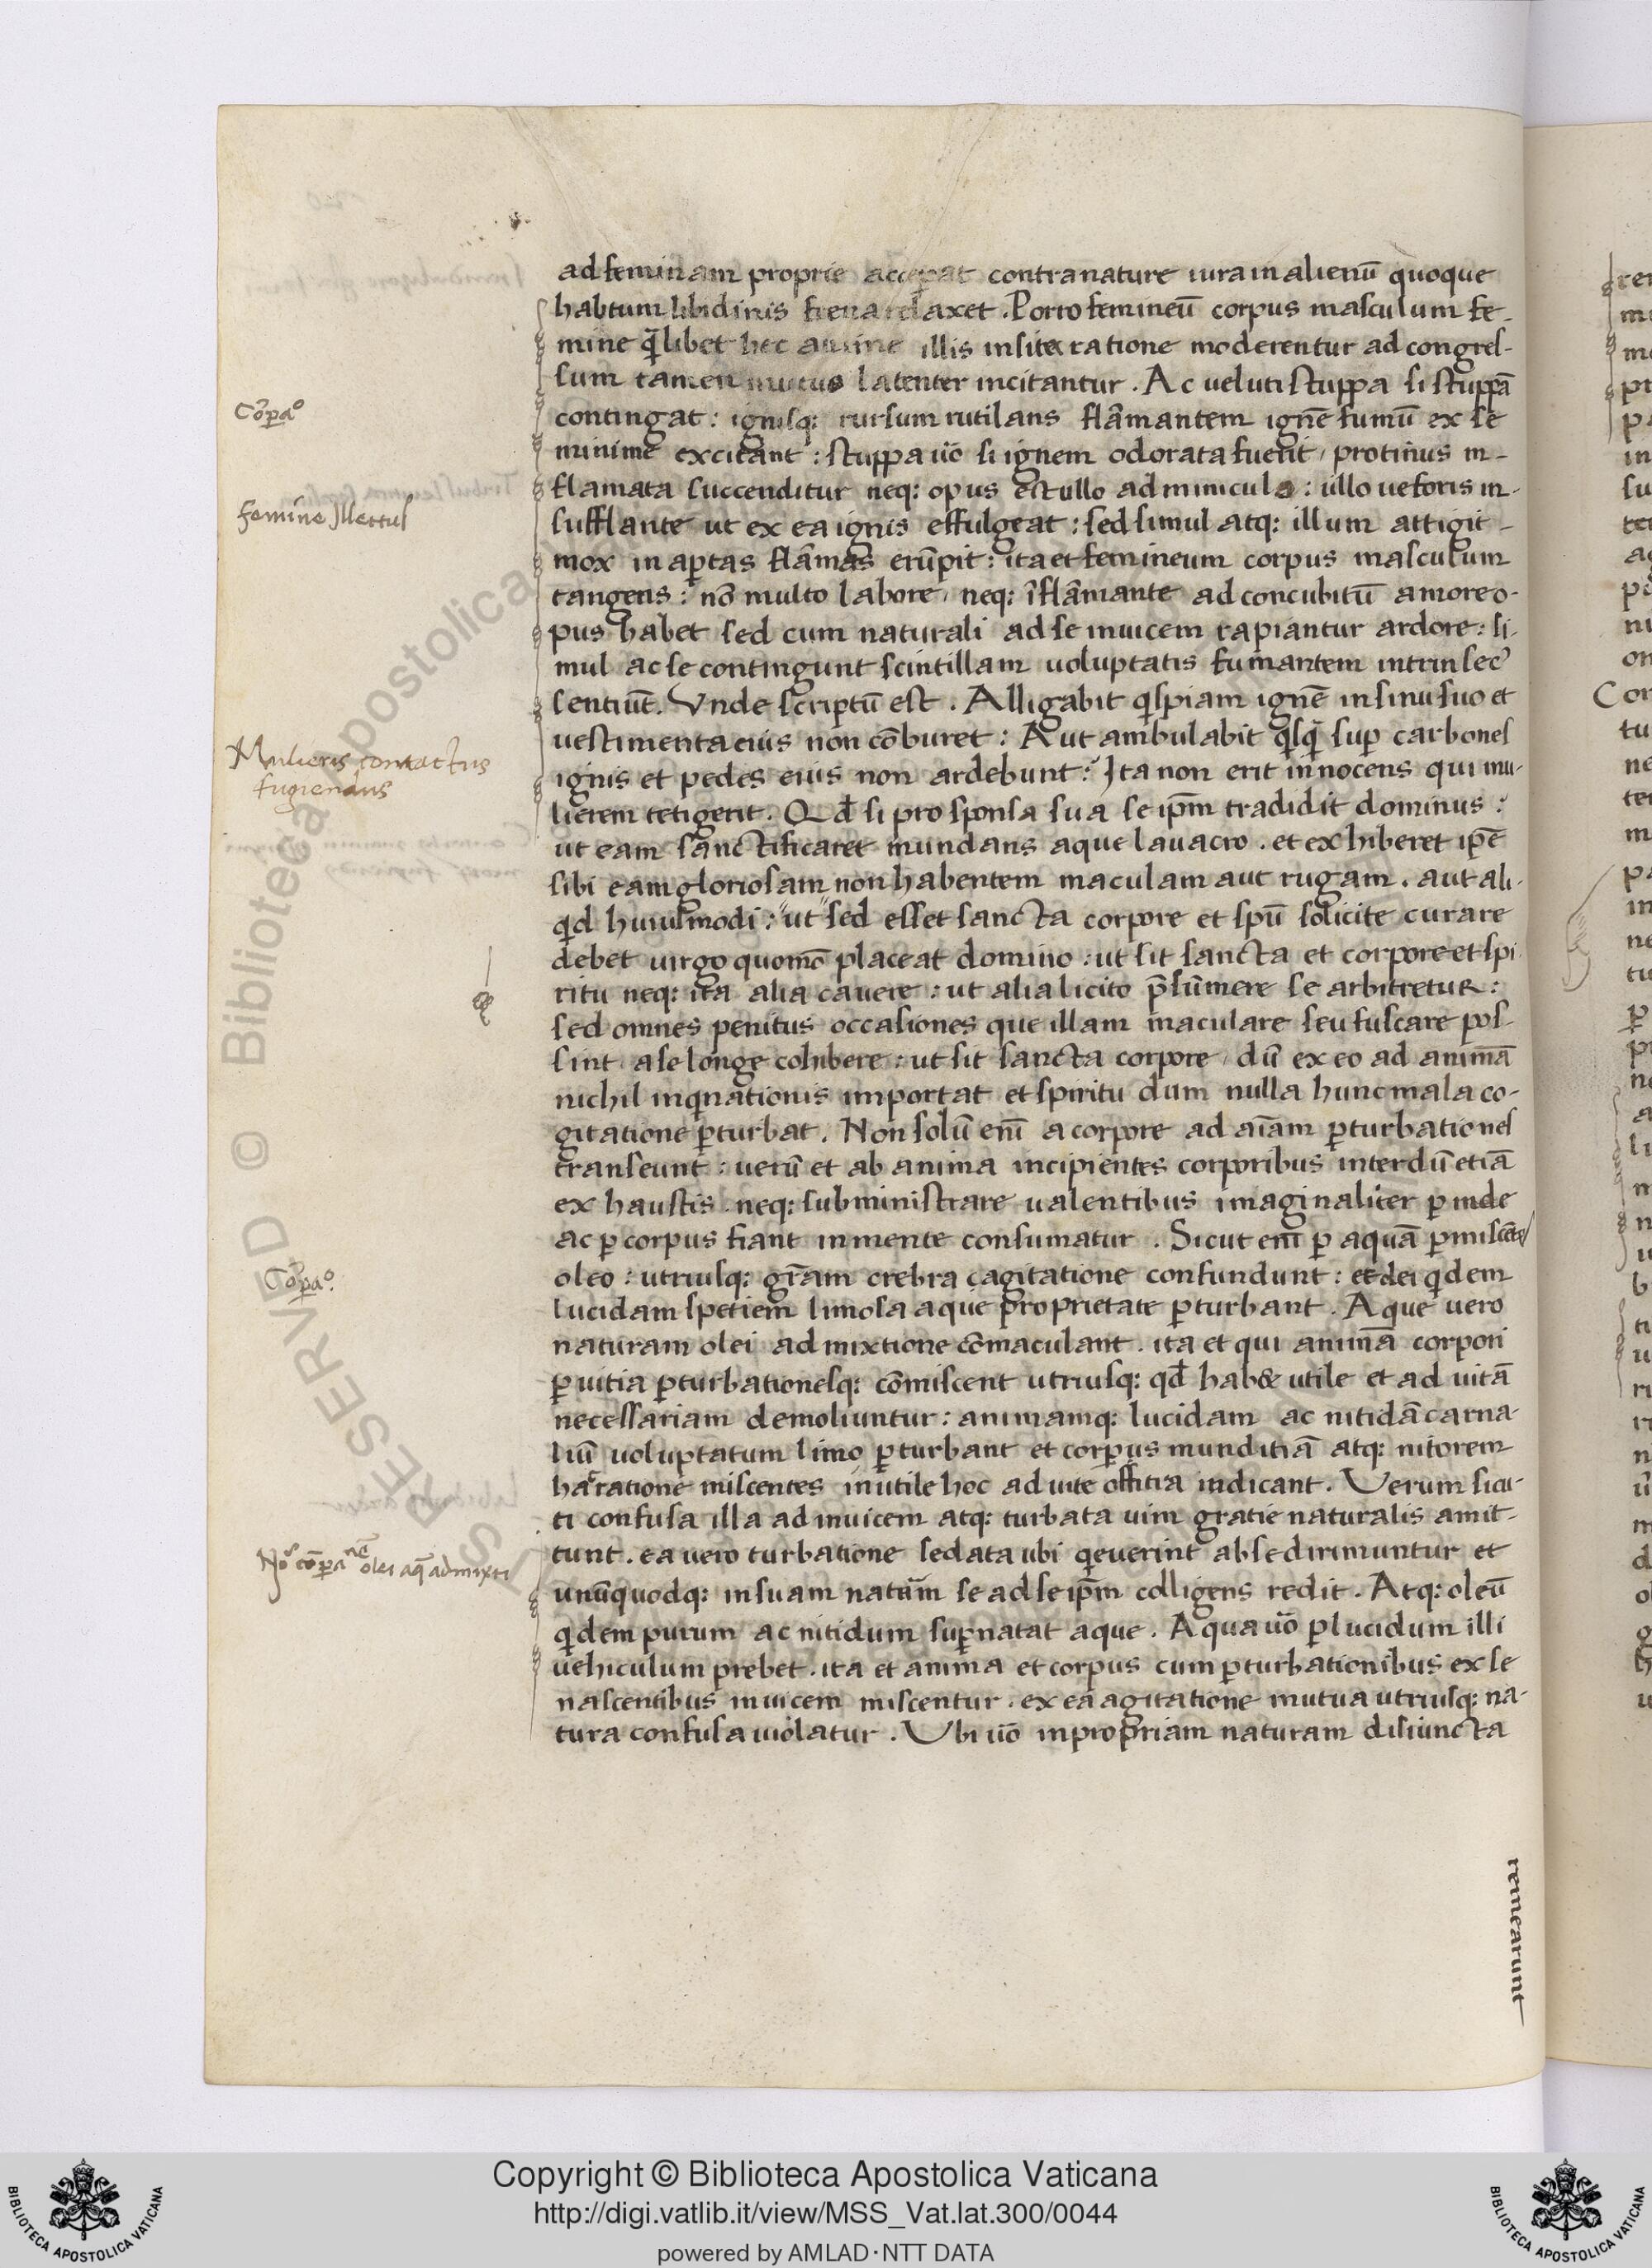 ad feminam proprie accepat contra nature iura in alienū quoque
habitum libidinis frena relaxet. Porro femineū corpus masculum fe-
mine q̄libet hec anime illis insite ratione moderentur ad congres-
sum tamen mutuo latenter incitantur. Ac ueluti stuppa si stuppā
Cōpaᵒ
contingat: ignisq; rursum rutilans flāmantem ignē fumū ex se
minime excitant: stuppa ūo si ignem odorata fuerit, protinus in-
flamata succenditur neq; opus est ullo adminiculo: ullo ue foris in-
femine Illectus
sufflante ut ex ea ignis effulgeat: sed simul atq; illum attigit
mox in aptas flāmas erūpit: ita et femineum corpus masculum
tangens: nō multo labore, neq; īflāmante ad concubitū amore o-
pus habet sed cum naturali ad se inuicem rapiantur ardore: si-
mul ac se contingunt scintillam uoluptatis fumantem intrinsec᾿
sentiūt. Vnde scriptū est. Alligabit qispiam ignē in sinu suo et
uestimenta eius non cōburet: Aut ambulabit qisq̄ sup carbones
Mulieris contactus
fugiendus
ignis et pedes eius non ardebunt: Ita non erit innocens qui mu-
lierem tetigerit. Qđ si pro sponsa sua se ip̄m tradidit dominus:
ut eam sanctificaret mundans aque lauacro. et exhiberet ip̄e
sibi eam gloriosam non habentem maculam aut rugam. aut ali-
qid huiusmodi: "ut" sed esset sancta corpore et sp̄u solicite curare
debet uirgo quomō placeat domino: ut sit sancta et corpore et spi-
ritu neq; ita alia cauere: ut alia licito p̄sūmere se arbitretur:
sed omnes penitus occasiones que illam maculare seu fuscare pos-
sint a se longe cohibere: ut sit sancta corpore, dū ex eo ad animā
nichil inqinationis importat et spiritu dum nulla hunc mala co-
gitatione pturbat. Non solū enī a corpore ad aīam pturbationes
transeunt: uerū et ab anima incipientes corporibus interdū etiā
exhaustis neq; subministrare ualentibus imaginaliter pinde
ac p corpus fiant in mente consumatur. Sicut enī p aquā pmiscēte
Cōpaᵒ.
oleo: utriusq; grām crebra agitatione confundunt: et dei qidem
lucidam spetiem limosa aque proprietate pturbant. Aque uero
naturam olei admixtione cōmaculant. ita et qui animā corpori
p uitia pturbationesq; cōmiscent utriusq; qđ hab& utile et ad uitā
necessariam demoliuntur: animamq; lucidam ac nitidā carna-
liū uoluptatum limo pturbant et corpus munditiā atq; nitorem
hac ratione miscentes inutile hoc ad uite offitia indicant. Verum sicu-
ti confusa illa adinuicem atq; turbata uim gratie naturalis amit-
tunt. ea uero turbatione sedata ubi qieuerint ab se dirimuntur et
Nōᵃ cōpaⁿᵉ olei aq̄ admixti
unūquodq; in suam natām se ad se ip̄m colligens redit. Atq; oleū
qidem purum ac nitidum supnatat aque. Aqua ūo plucidum illi
uehiculum prebet. ita et anima et corpus cum pturbationibus ex se
nascentibus inuicem miscentur. ex ea agitatione mutua utriusq; na-
tura confusa uiolatur. Vbi ūo in propriam naturam disiuncta
remearunt
Copyright © Biblioteca Apostolica Vaticana
http://digi.vatlib.it/view/MSS_Vat.lat.300/0044
powered by AMLAD·NTT DATA